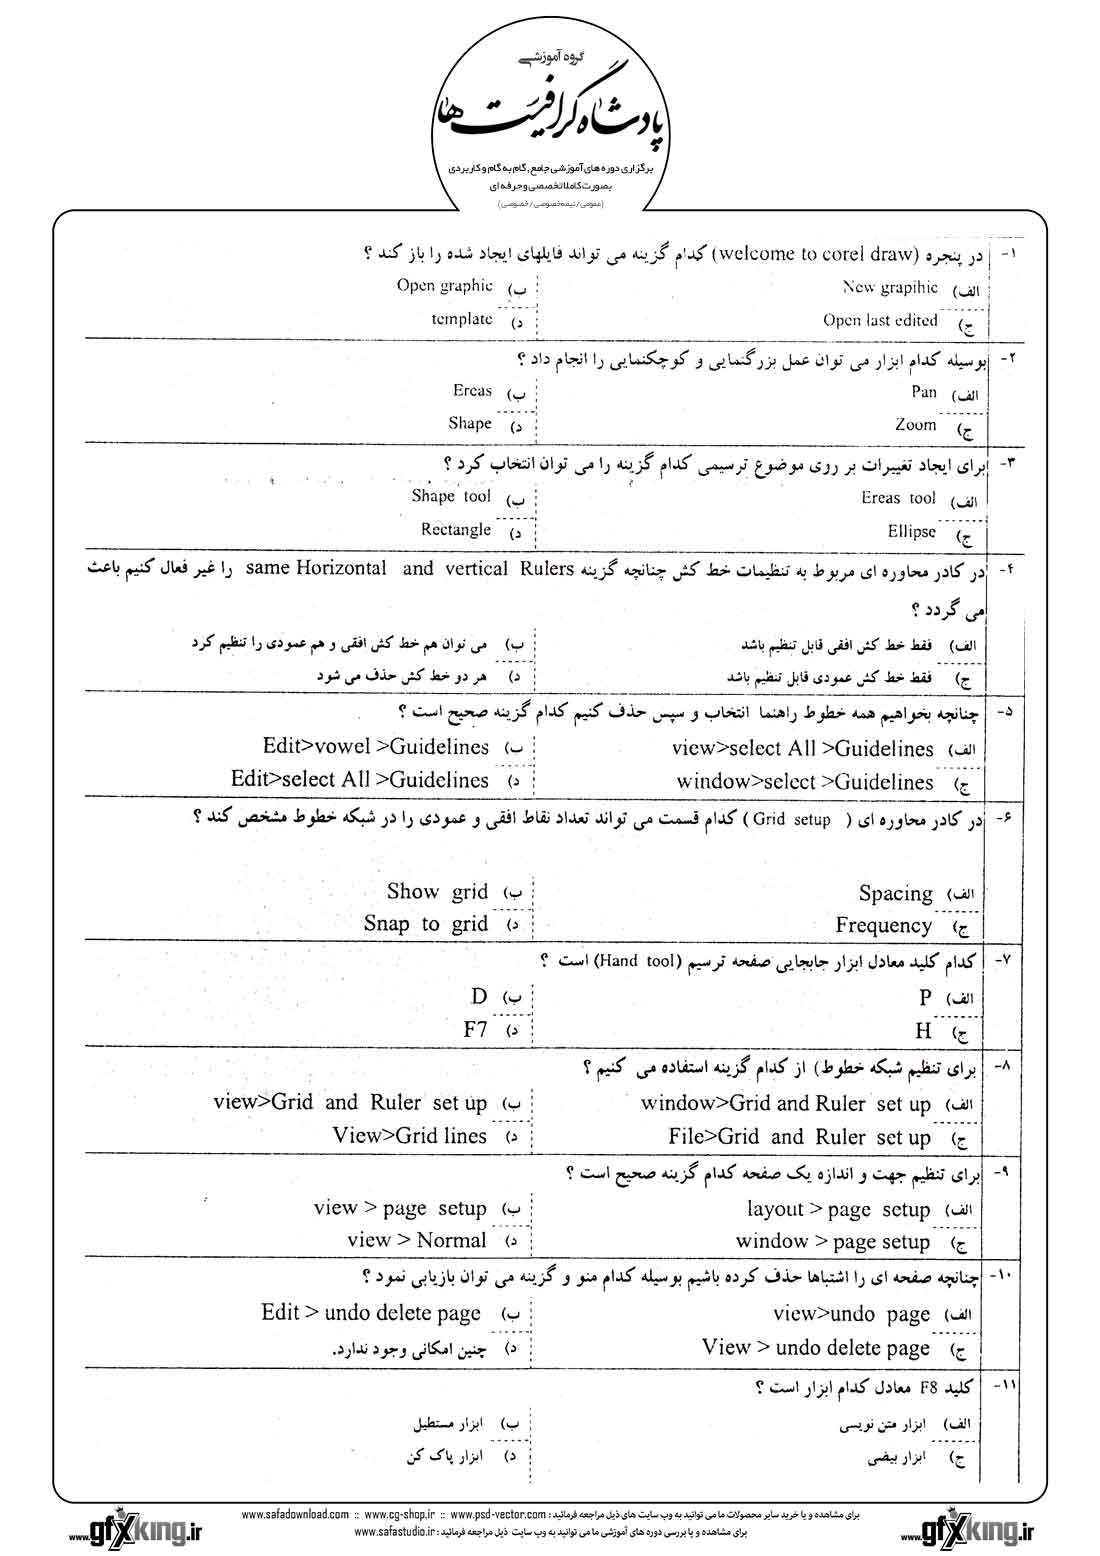 گروه آموزشی
پادشاه گرافیست ها
برگزاری دوره های آموزشی جامع , گام به گام و کاربردی
بصورت کاملا تخصصی و حرفه ای
(عمومی / نیمه خصوصی / خصوصی)
۱- در پنجره (welcome to corel draw) کدام گزینه می تواند فایلهای ایجاد شده را باز کند ؟
الف) New grapihic ب) Open graphic
ج) Open last edited د) template
۲- بوسیله کدام ابزار می توان عمل بزرگنمایی و کوچکنمایی را انجام داد ؟
الف) Pan ب) Ereas
ج) Zoom د) Shape
۳- برای ایجاد تغییرات بر روی موضوع ترسیمی کدام گزینه را می توان انتخاب کرد ؟
الف) Ereas tool ب) Shape tool
ج) Ellipse د) Rectangle
۴- در کادر محاوره ای مربوط به تنظیمات خط کش چنانچه گزینه same Horizontal and vertical Rulers را غیر فعال کنیم باعث
می گردد ؟
الف) فقط خط کش افقی قابل تنظیم باشد ب) می توان هم خط کش افقی و هم عمودی را تنظیم کرد
ج) فقط خط کش عمودی قابل تنظیم باشد د) هر دو خط کش حذف می شود
۵- چنانچه بخواهیم همه خطوط راهنما انتخاب و سپس حذف کنیم کدام گزینه صحیح است ؟
الف) view>select All >Guidelines ب) Edit>vowel >Guidelines
ج) window>select >Guidelines د) Edit>select All >Guidelines
۶- در کادر محاوره ای ( Grid setup ) کدام قسمت می تواند تعداد نقاط افقی و عمودی را در شبکه خطوط مشخص کند ؟
الف) Spacing ب) Show grid
ج) Frequency د) Snap to grid
۷- کدام کلید معادل ابزار جابجایی صفحه ترسیم (Hand tool) است ؟
الف) P ب) D
ج) H د) F7
۸- برای تنظیم شبکه خطوط) از کدام گزینه استفاده می کنیم ؟
الف) window>Grid and Ruler set up ب) view>Grid and Ruler set up
ج) File>Grid and Ruler set up د) View>Grid lines
۹- برای تنظیم جهت و اندازه یک صفحه کدام گزینه صحیح است ؟
الف) layout > page setup ب) view > page setup
ج) window > page setup د) view > Normal
۱۰- چنانچه صفحه ای را اشتباها حذف کرده باشیم بوسیله کدام منو و گزینه می توان بازیابی نمود ؟
الف) view>undo page ب) Edit > undo delete page
ج) View > undo delete page د) چنین امکانی وجود ندارد.
۱۱- کلید F8 معادل کدام ابزار است ؟
الف) ابزار متن نویسی ب) ابزار مستطیل
ج) ابزار بیضی د) ابزار پاک کن
برای مشاهده و یا خرید سایر محصولات ما می توانید به وب سایت های ذیل مراجعه فرمائید : www.safadownload.com :: www.cg-shop.ir :: www.psd-vector.com
برای مشاهده و یا بررسی دوره های آموزشی ما می توانید به وب سایت ذیل مراجعه فرمائید : www.safastudio.ir
www.gfxking.ir
www.gfxking.ir